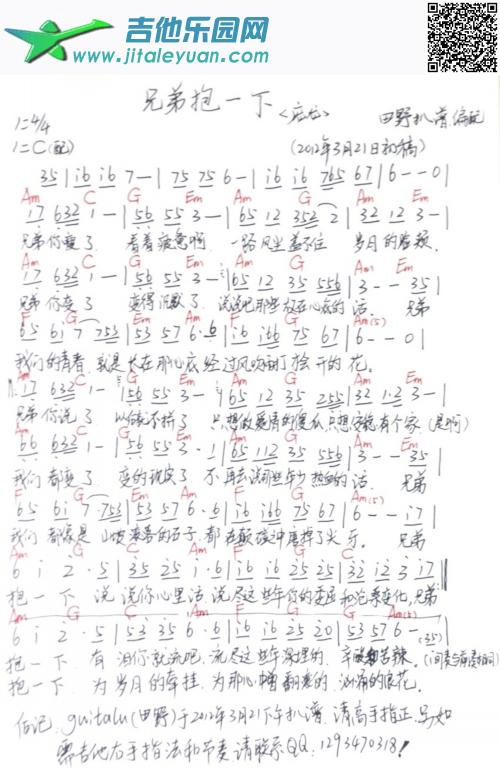 吉他乐园网
www.jitaleyuan.com
兄弟抱一下
<庞龙>
田野扒谱编配
1=4/4
1=C(配)
(2012年3月21日初稿)
35 | i6 i6 7 — | 75 75 6 — | i6 i6 765 67 | 6 - - 0 |
Am C G Em Am G Em
17 632 1 — | 56 55 3 — | 65 12 352 2 | 32 12 3 — |
兄弟你瘦了 看着疲惫啊 一路风尘盖不住 岁月的脸颊
Am C G Em Am G Am Em
17 632 1 — | 56 55 3 — | 65 12 35 556 | 3 — — 35 |
兄弟你变了 变得沉默了 说说吧那些放在心底的话 兄弟
F G Em Am F G Am(5)
65 61 7 753 | 53 57 6·6 | i6 i66 75 67 | 6 - - 0 |
我们的青春 就是长在那心底 经过风吹雨打才绽开的花
Am C G Em Am G Em
17 632 1 — | 56 55 3 — | 65 12 35 255 | 32 1·2 3 — |
兄弟你说了 以后不拼了 只想做爱情的傻瓜 只想安稳有个家 (是啊)
Am C G Em Am G Em
66 632 1 — | 56 55 3·1 | 65 112 35 556 | 3 — — 35 |
我们都变了 变的现实了 不再去说那些年少热血的话 兄弟
F G Em Am F G Am(5)
65 61 7 753 | 53 57 6·6 | i6 i66 75 67 | 6 — — i7 |
我们都像是 山坡滚落的石子 都在颠簸中磨掉了尖牙 兄弟
Am G Em Am F G Em
6 i 2·5 | 35 25 i·6 | i6 i6 25 25 | 32 12 3 17 |
抱一下 说说你心里话 说尽这些年你的委屈和沧桑变化 兄弟
Am G Em Am F G Am(5)
6 i 2·5 | 53 35 6·6 | i6 i6 25 20 | 53 57 6 — (35) |
抱一下 有泪你就流吧 流尽这些年深埋的 辛酸和苦辣 (间奏与前奏相同)
抱一下 为岁月的牵挂 为那心中翻滚的 汹涌的浪花
后记: guitalu(田野)于2012年3月21下午扒谱 请高手指正 另如
需吉他右手指法和节奏请联系QQ: 1293470318!